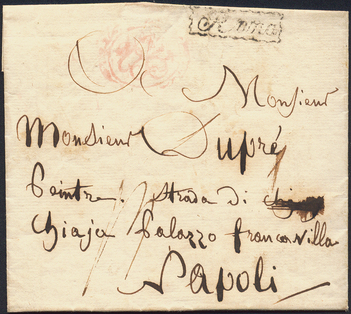 Roma
Monsieur
Monsieur Dupré
Peintre. Strada di
Chiaja Palazzo francavilla
Napoli